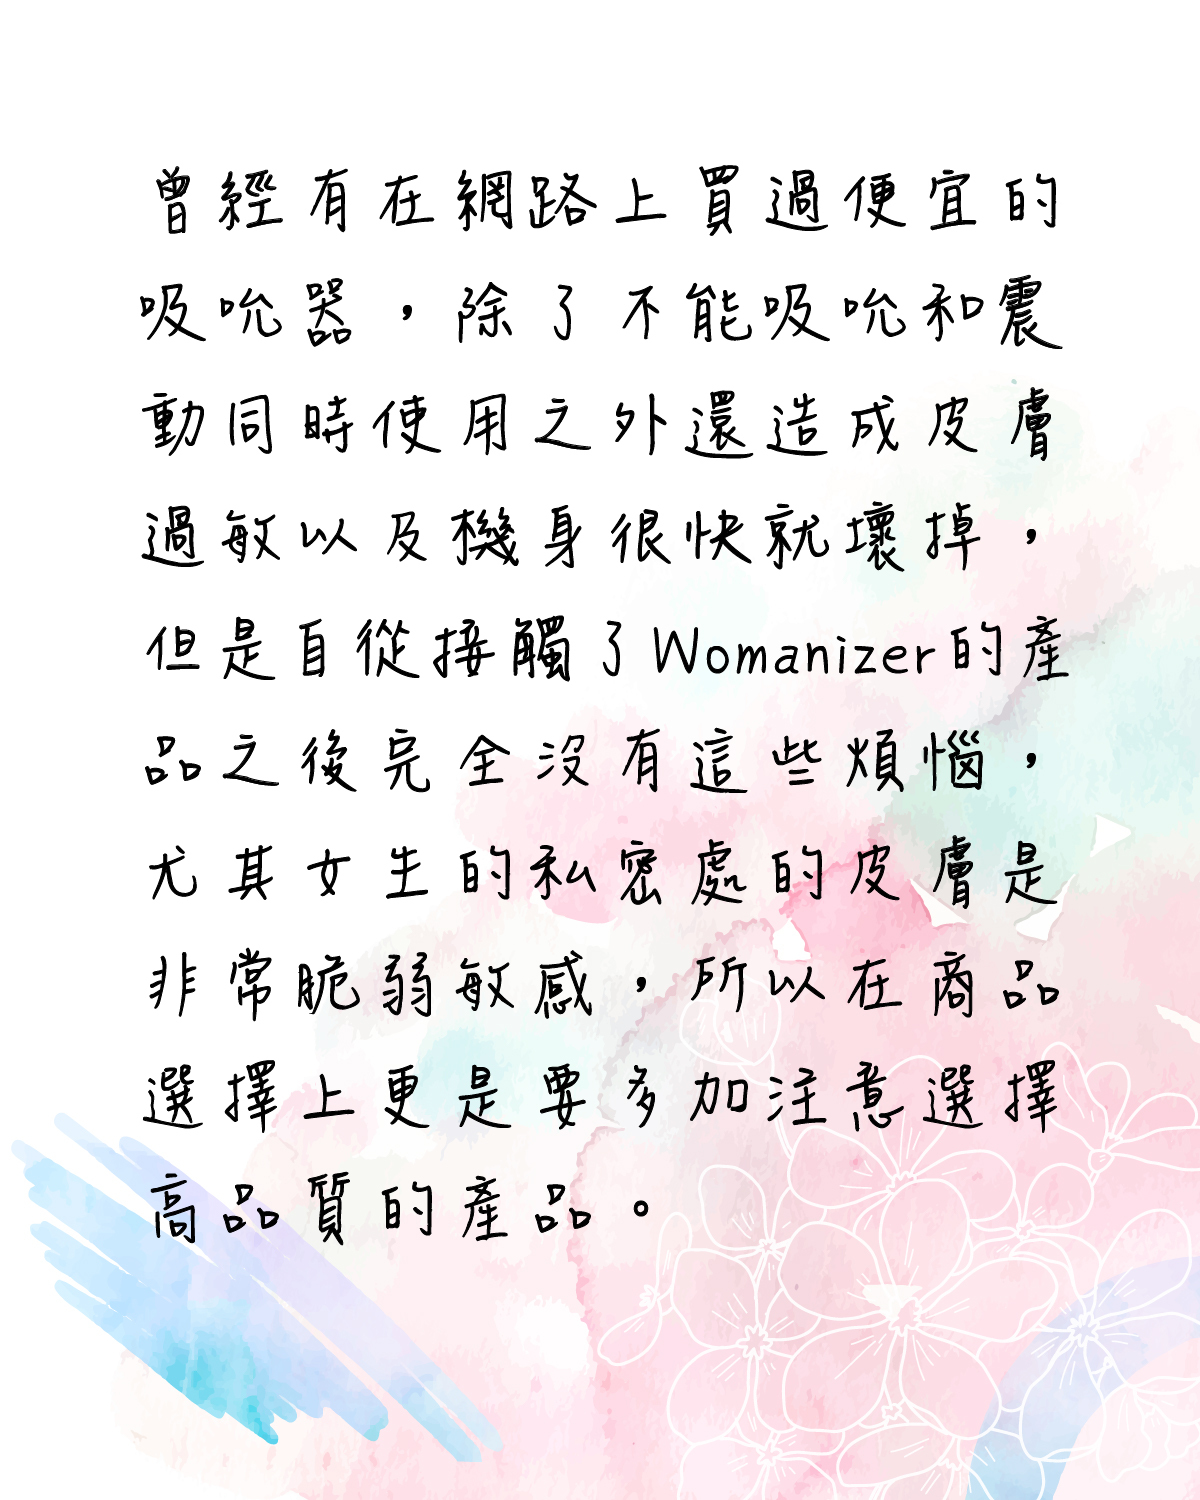 曾經有在網路上買過便宜的
吸吮器，除了不能吸吮和震
動同時使用之外還造成皮膚
過敏以及機身很快就壞掉，
但是自從接觸了Womanizer的產
品之後完全沒有這些煩惱，
尤其女生的私密處的皮膚是
非常脆弱敏感，所以在商品
選擇上更是要多加注意選擇
高品質的產品。